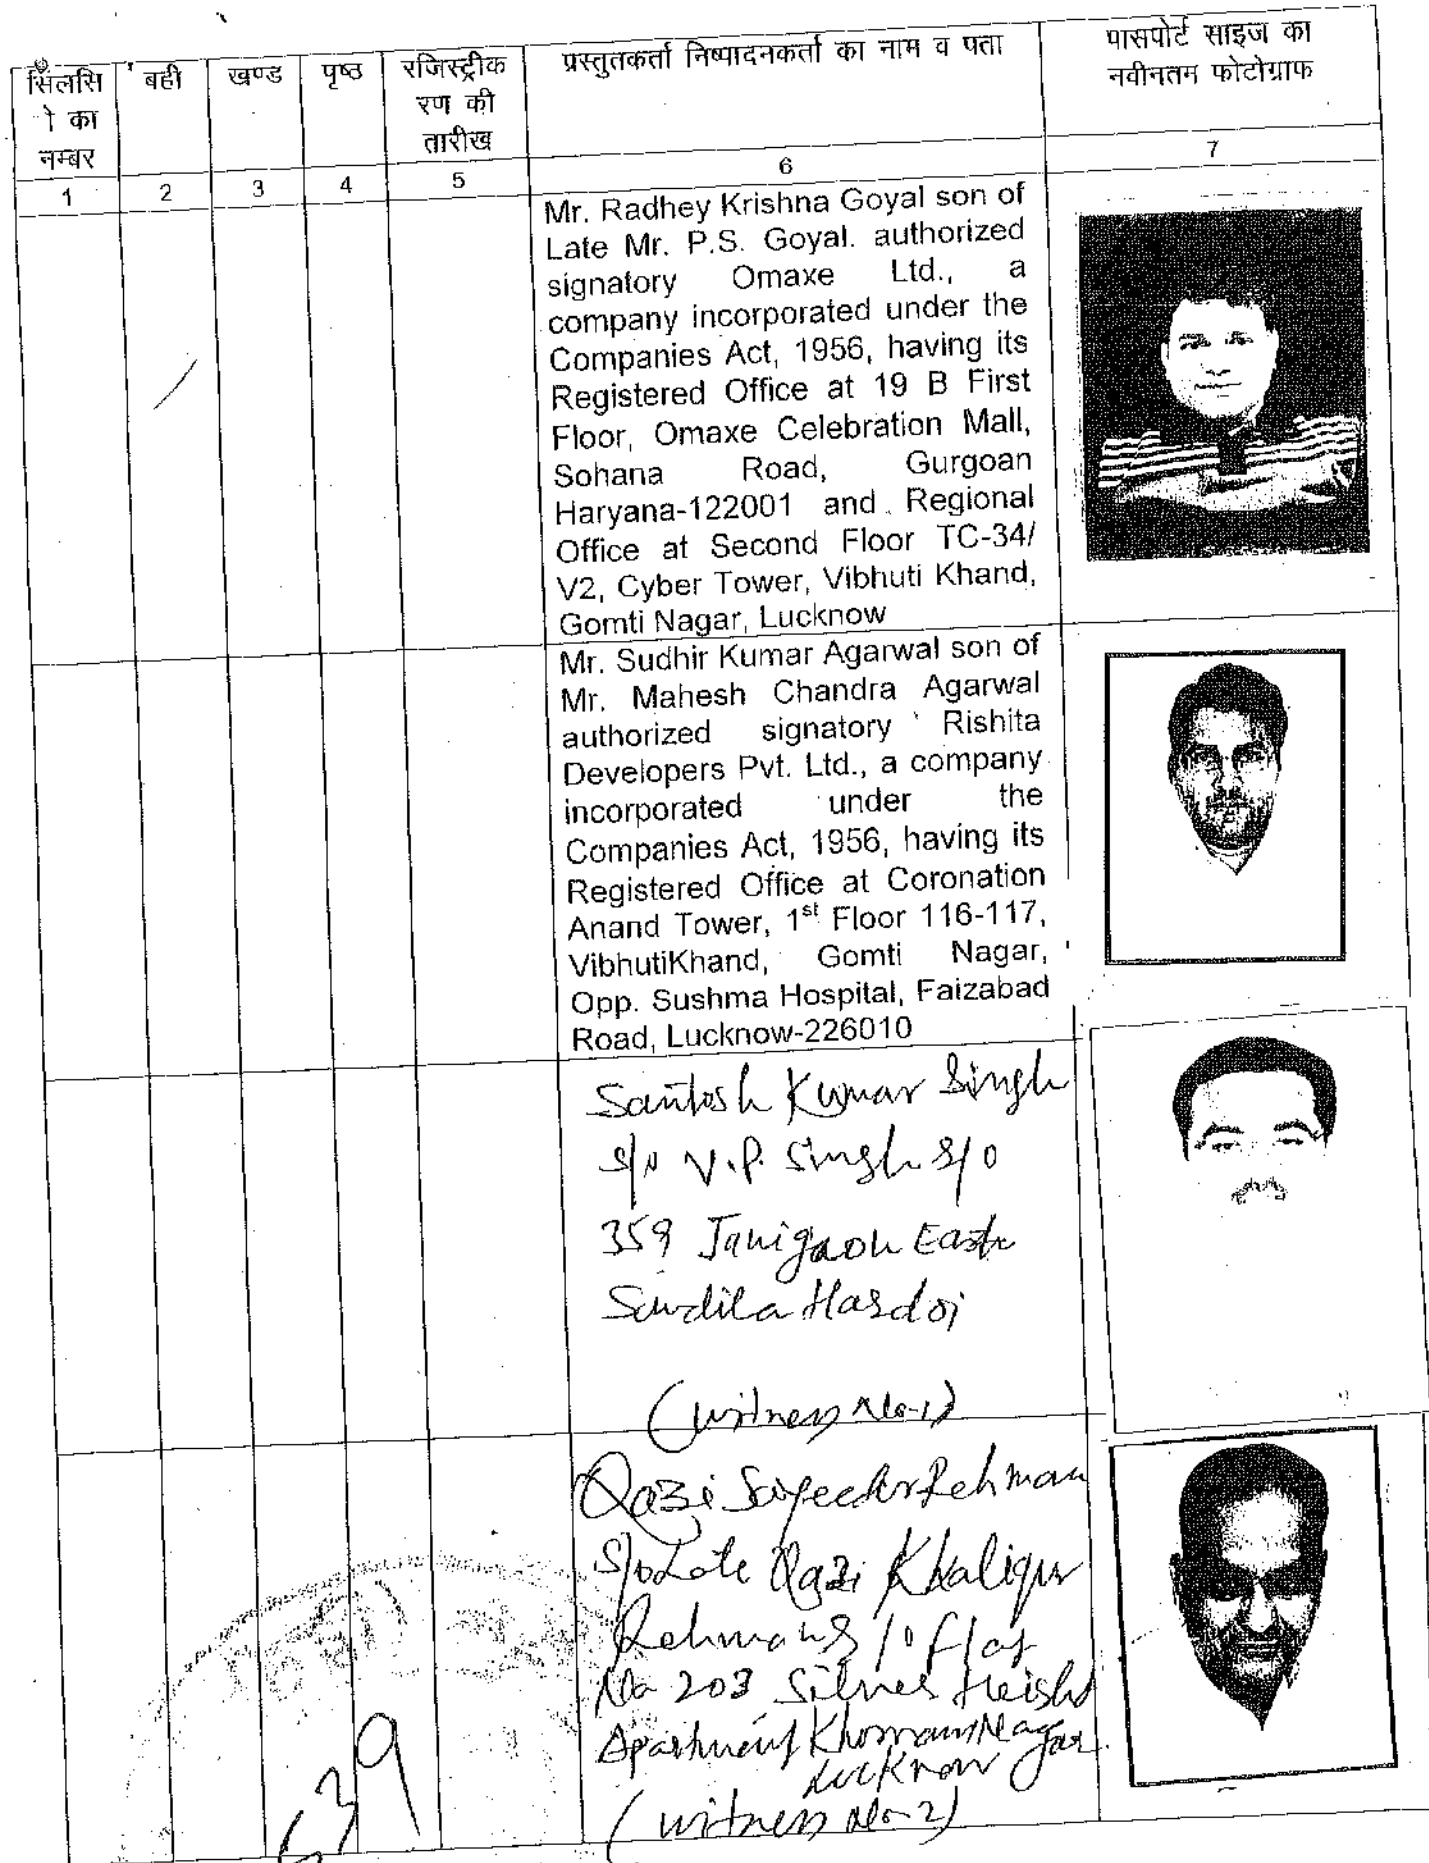 सिलसि
े का
नम्बर
बही
खण्ड
पृष्ठ
रजिस्ट्रीक
रण की
तारीख
प्रस्तुतकर्ता निष्पादनकर्ता का नाम व पता
पासपोर्ट साइज का
नवीनतम फोटोग्राफ
1 2 3 4 5 6 7
Mr. Radhey Krishna Goyal son of
Late Mr. P.S. Goyal. authorized
signatory Omaxe Ltd., a
company incorporated under the
Companies Act, 1956, having its
Registered Office at 19 B First
Floor, Omaxe Celebration Mall,
Sohana Road, Gurgoan
Haryana-122001 and Regional
Office at Second Floor TC-34/
V2, Cyber Tower, Vibhuti Khand,
Gomti Nagar, Lucknow
Mr. Sudhir Kumar Agarwal son of
Mr. Mahesh Chandra Agarwal
authorized signatory Rishita
Developers Pvt. Ltd., a company
incorporated under the
Companies Act, 1956, having its
Registered Office at Coronation
Anand Tower, 1st Floor 116-117,
VibhutiKhand, Gomti Nagar,
Opp. Sushma Hospital, Faizabad
Road, Lucknow-226010
Santosh Kumar Singh
S/o V.P. Singh S/o
359 East
Sandila Hardoi
(witness No-1)
Qazi Sayeedur Rehman
S/o Late Qazi Khaliqur
Rehman S/o Flat
No 203 Silver Height
Apartment Khorram Nagar
Lucknow
(witness No-2)
39